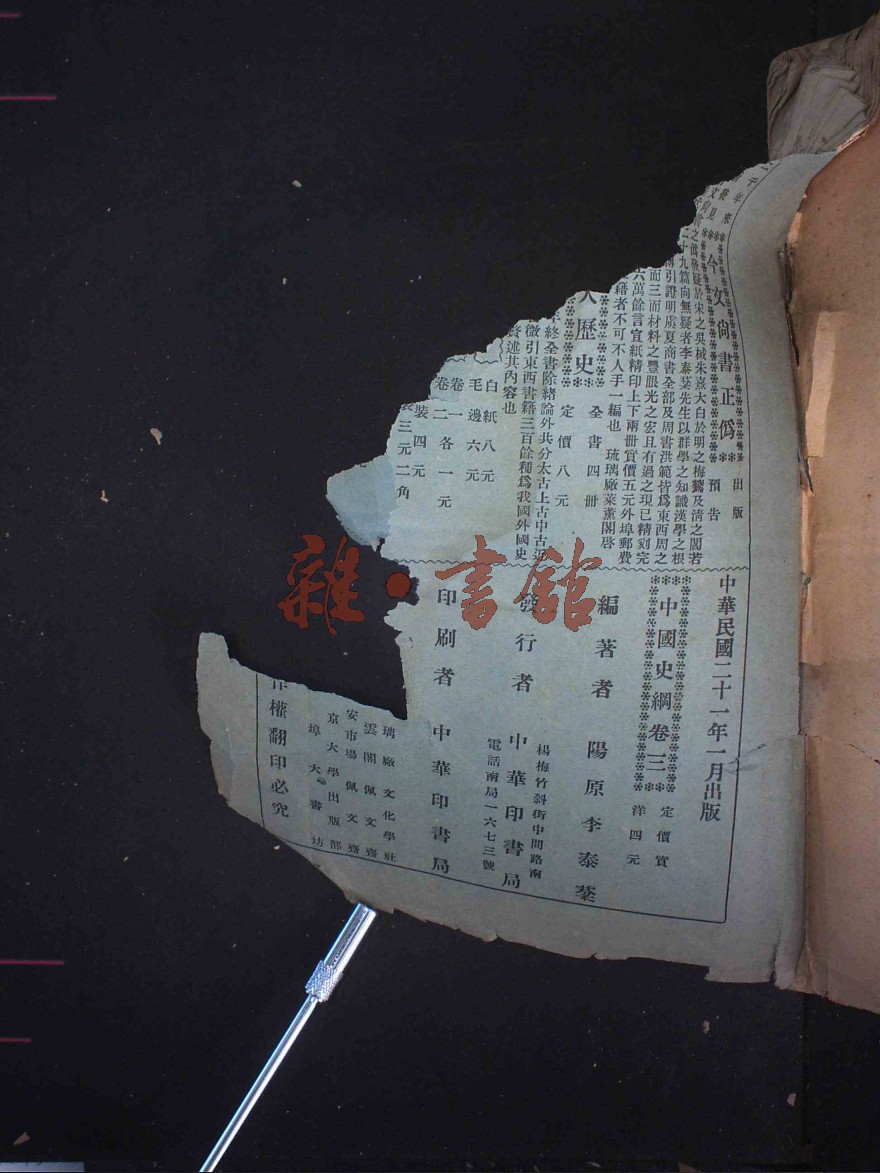 千年來
發見
今文尚書正僞
出版
預告
之僞孫疑於宋之吳棫朱熹大白於明之梅鷟及清之閻若
二十九篇向無疑者李泰棻先生以群學之知識漢學之根
引證明處夏商書全部及周書洪範皆為東西周之
而三而材料之豐眼光之宏且有過之現已精刻完
六萬餘言宣紙精印上下兩册實價五元外埠郵費
籍者不可不人手一編也 琉璃廠菜薰閣啓
歷史
全書四册
定價八元
終全書除緒論外共分太古上古中古近
徵引東西書籍三百餘種為我國外國史
述其內容也
白紙八元
毛邊六元
卷一
卷二各一元
裝四元
裝三元二角
中華民國二十一年一月出版
中國史綱卷三
定價實
洋四元
編著者 陽原李泰棻
發行者 中華印書局
楊梅竹斜街中間路南
電話南局一六七三號
印刷者 中華印書局
璃廠文化學社
雲閣佩文齋
安市場佩文齋
京大學出版部
埠大書坊
作權翻印必究
雜·書館